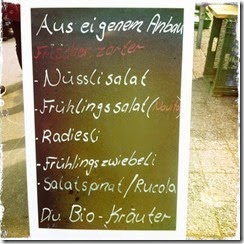 Aus eigenem Anbau
Frischer, zarter
- Nüsslisalat
- Frühlingssalat
- Radiesli
- Frühlingszwiebeli
- Salatspinat/Rucola
Div. Bio-Kräuter